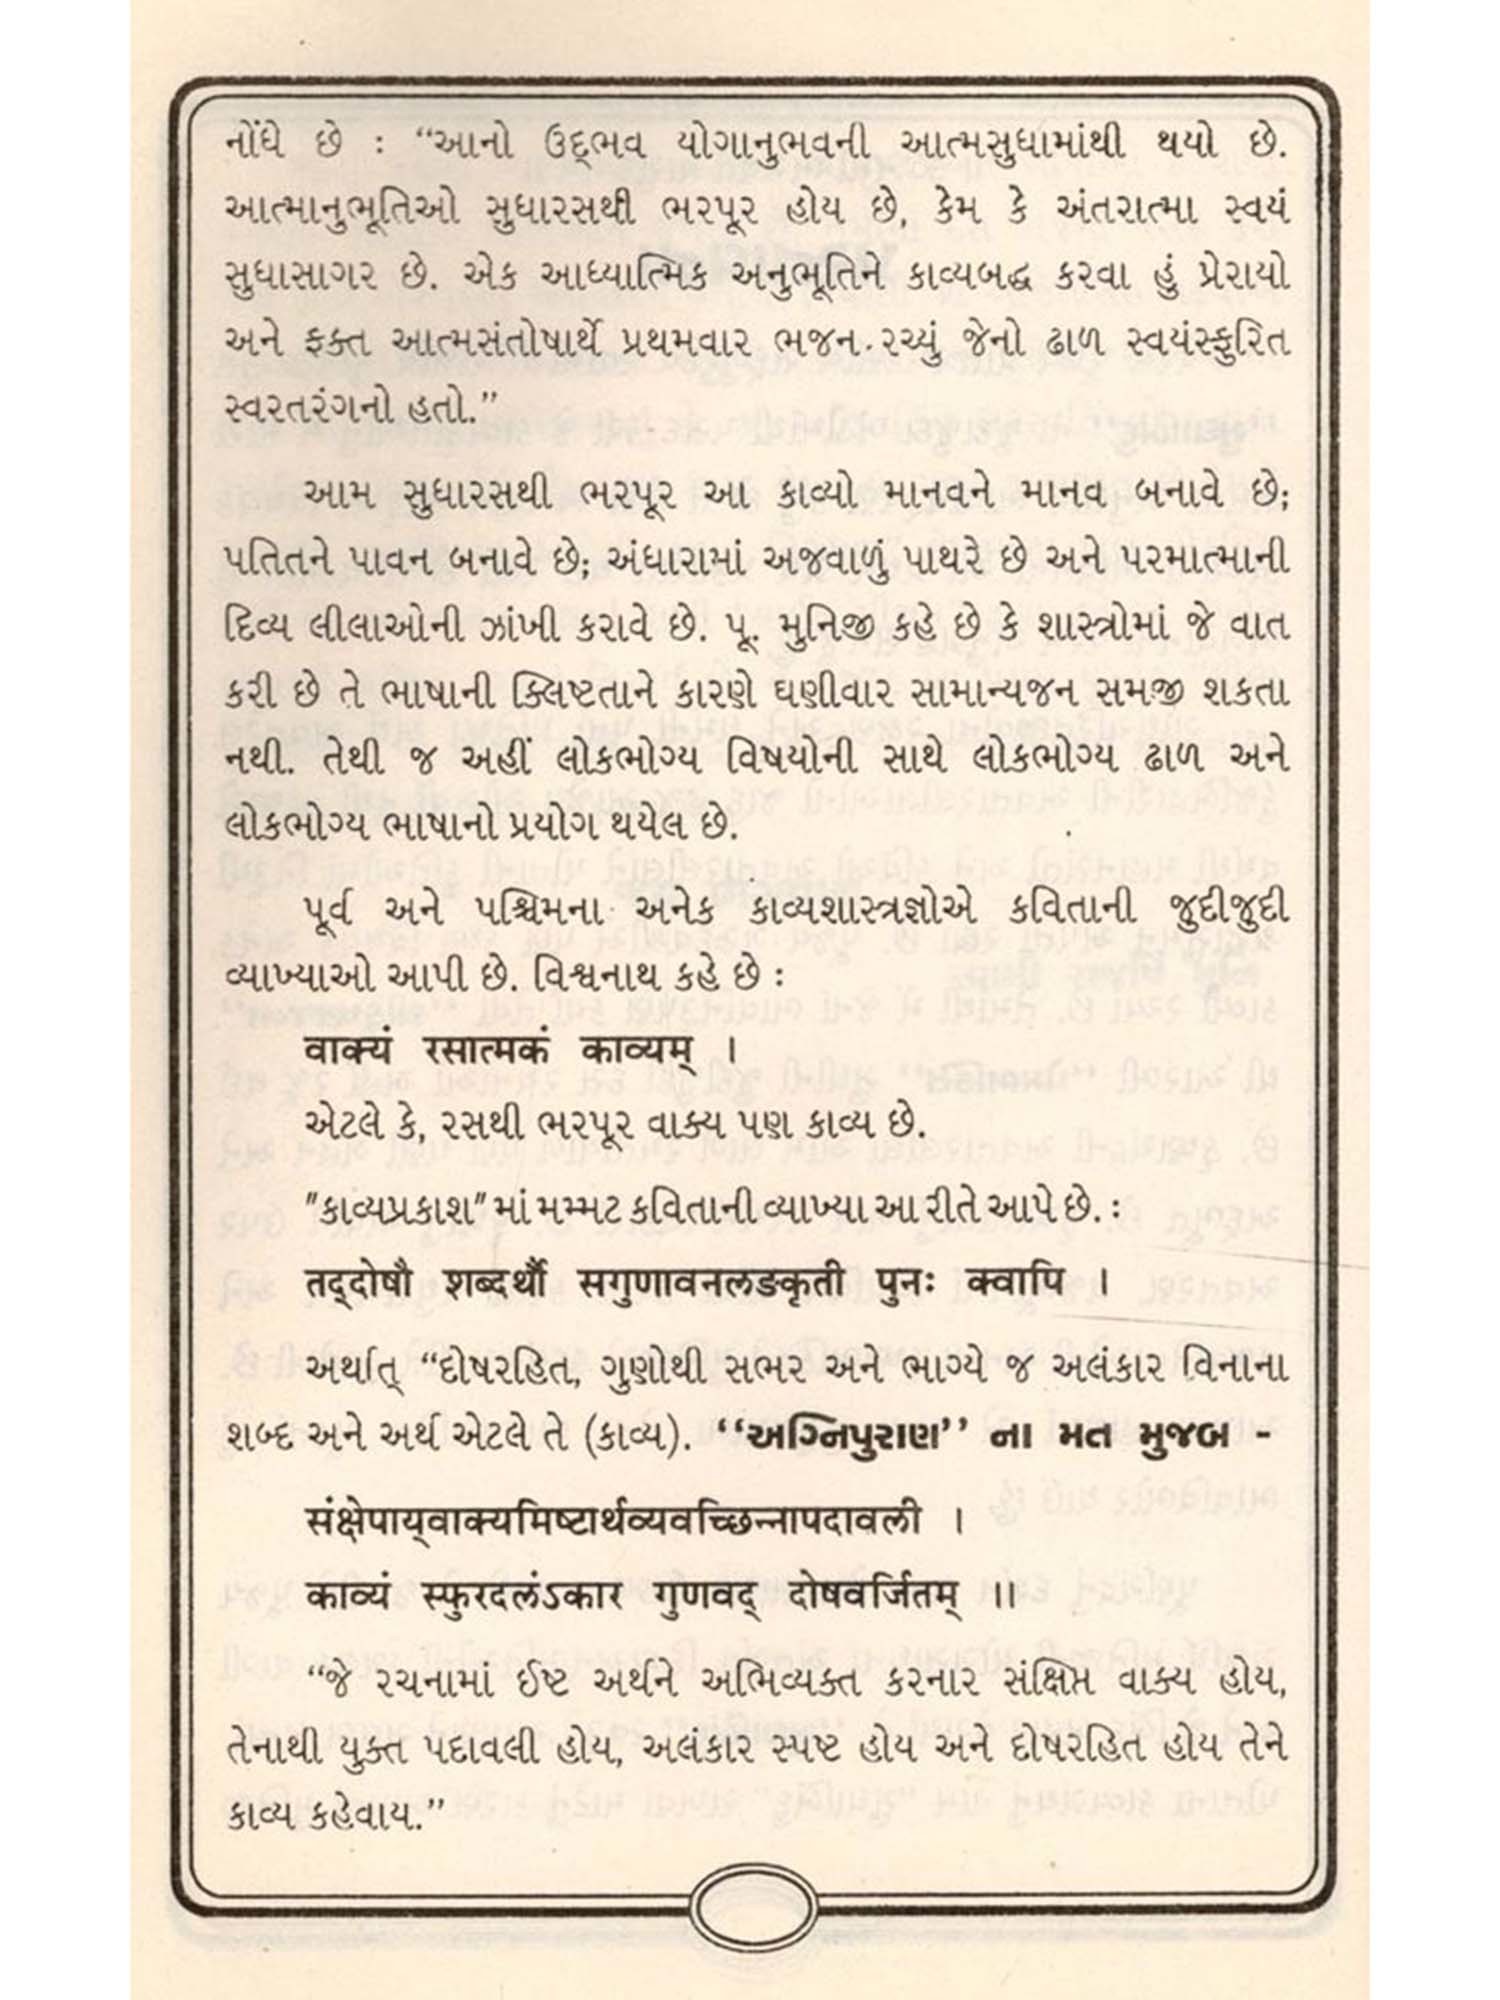 નોંધે છે : “આનો ઉદ્‌ભવ યોગાનુભવની આત્મસુધામાંથી થયો છે.
આત્માનુભૂતિઓ સુધારસથી ભરપૂર હોય છે, કેમ કે અંતરાત્મા સ્વયં
સુધાસાગર છે. એક આધ્યાત્મિક અનુભૂતિને કાવ્યબદ્ધ કરવા હું પ્રેરાયો
અને ફક્ત આત્મસંતોષાર્થે પ્રથમવાર ભજન રચ્યું જેનો ઢાળ સ્વયંસ્ફુરિત
સ્વરતરંગનો હતો.”
આમ સુધારસથી ભરપૂર આ કાવ્યો માનવને માનવ બનાવે છે;
પતિતને પાવન બનાવે છે; અંધારામાં અજવાળું પાથરે છે અને પરમાત્માની
દિવ્ય લીલાઓની ઝાંખી કરાવે છે. પૂ. મુનિજી કહે છે કે શાસ્ત્રોમાં જે વાત
કરી છે તે ભાષાની ક્લિષ્ટતાને કારણે ઘણીવાર સામાન્યજન સમજી શકતા
નથી. તેથી જ અહીં લોકભોગ્ય વિષયોની સાથે લોકભોગ્ય ઢાળ અને
લોકભોગ્ય ભાષાનો પ્રયોગ થયેલ છે.
પૂર્વ અને પશ્ચિમના અનેક કાવ્યશાસ્ત્રજ્ઞોએ કવિતાની જુદીજુદી
વ્યાખ્યાઓ આપી છે. વિશ્વનાથ કહે છે :
વાક્યં રસાત્મકં કાવ્યમ્ ।
એટલે કે, રસથી ભરપૂર વાક્ય પણ કાવ્ય છે.
"કાવ્યપ્રકાશ" માં મમ્મટ કવિતાની વ્યાખ્યા આ રીતે આપે છે. :
તદ્‌દોષૌ શબ્દર્થૌ સગુણાવનલઙકૃતી પુનઃ ક્વાપિ ।
અર્થાત્ “દોષરહિત, ગુણોથી સભર અને ભાગ્યે જ અલંકાર વિનાના
શબ્દ અને અર્થ એટલે તે (કાવ્ય). “અગ્નિપુરાણ” ના મત મુજબ -
સંક્ષેપાય્‌વાક્યમિષ્ટાર્થવ્યવચ્છિન્નાપદાવલી ।
કાવ્યં સ્ફુરદલંઽકાર ગુણવદ્ દોષવર્જિતમ્ ।।
“જે રચનામાં ઈષ્ટ અર્થને અભિવ્યક્ત કરનાર સંક્ષિપ્ત વાક્ય હોય,
તેનાથી યુક્ત પદાવલી હોય, અલંકાર સ્પષ્ટ હોય અને દોષરહિત હોય તેને
કાવ્ય કહેવાય.”